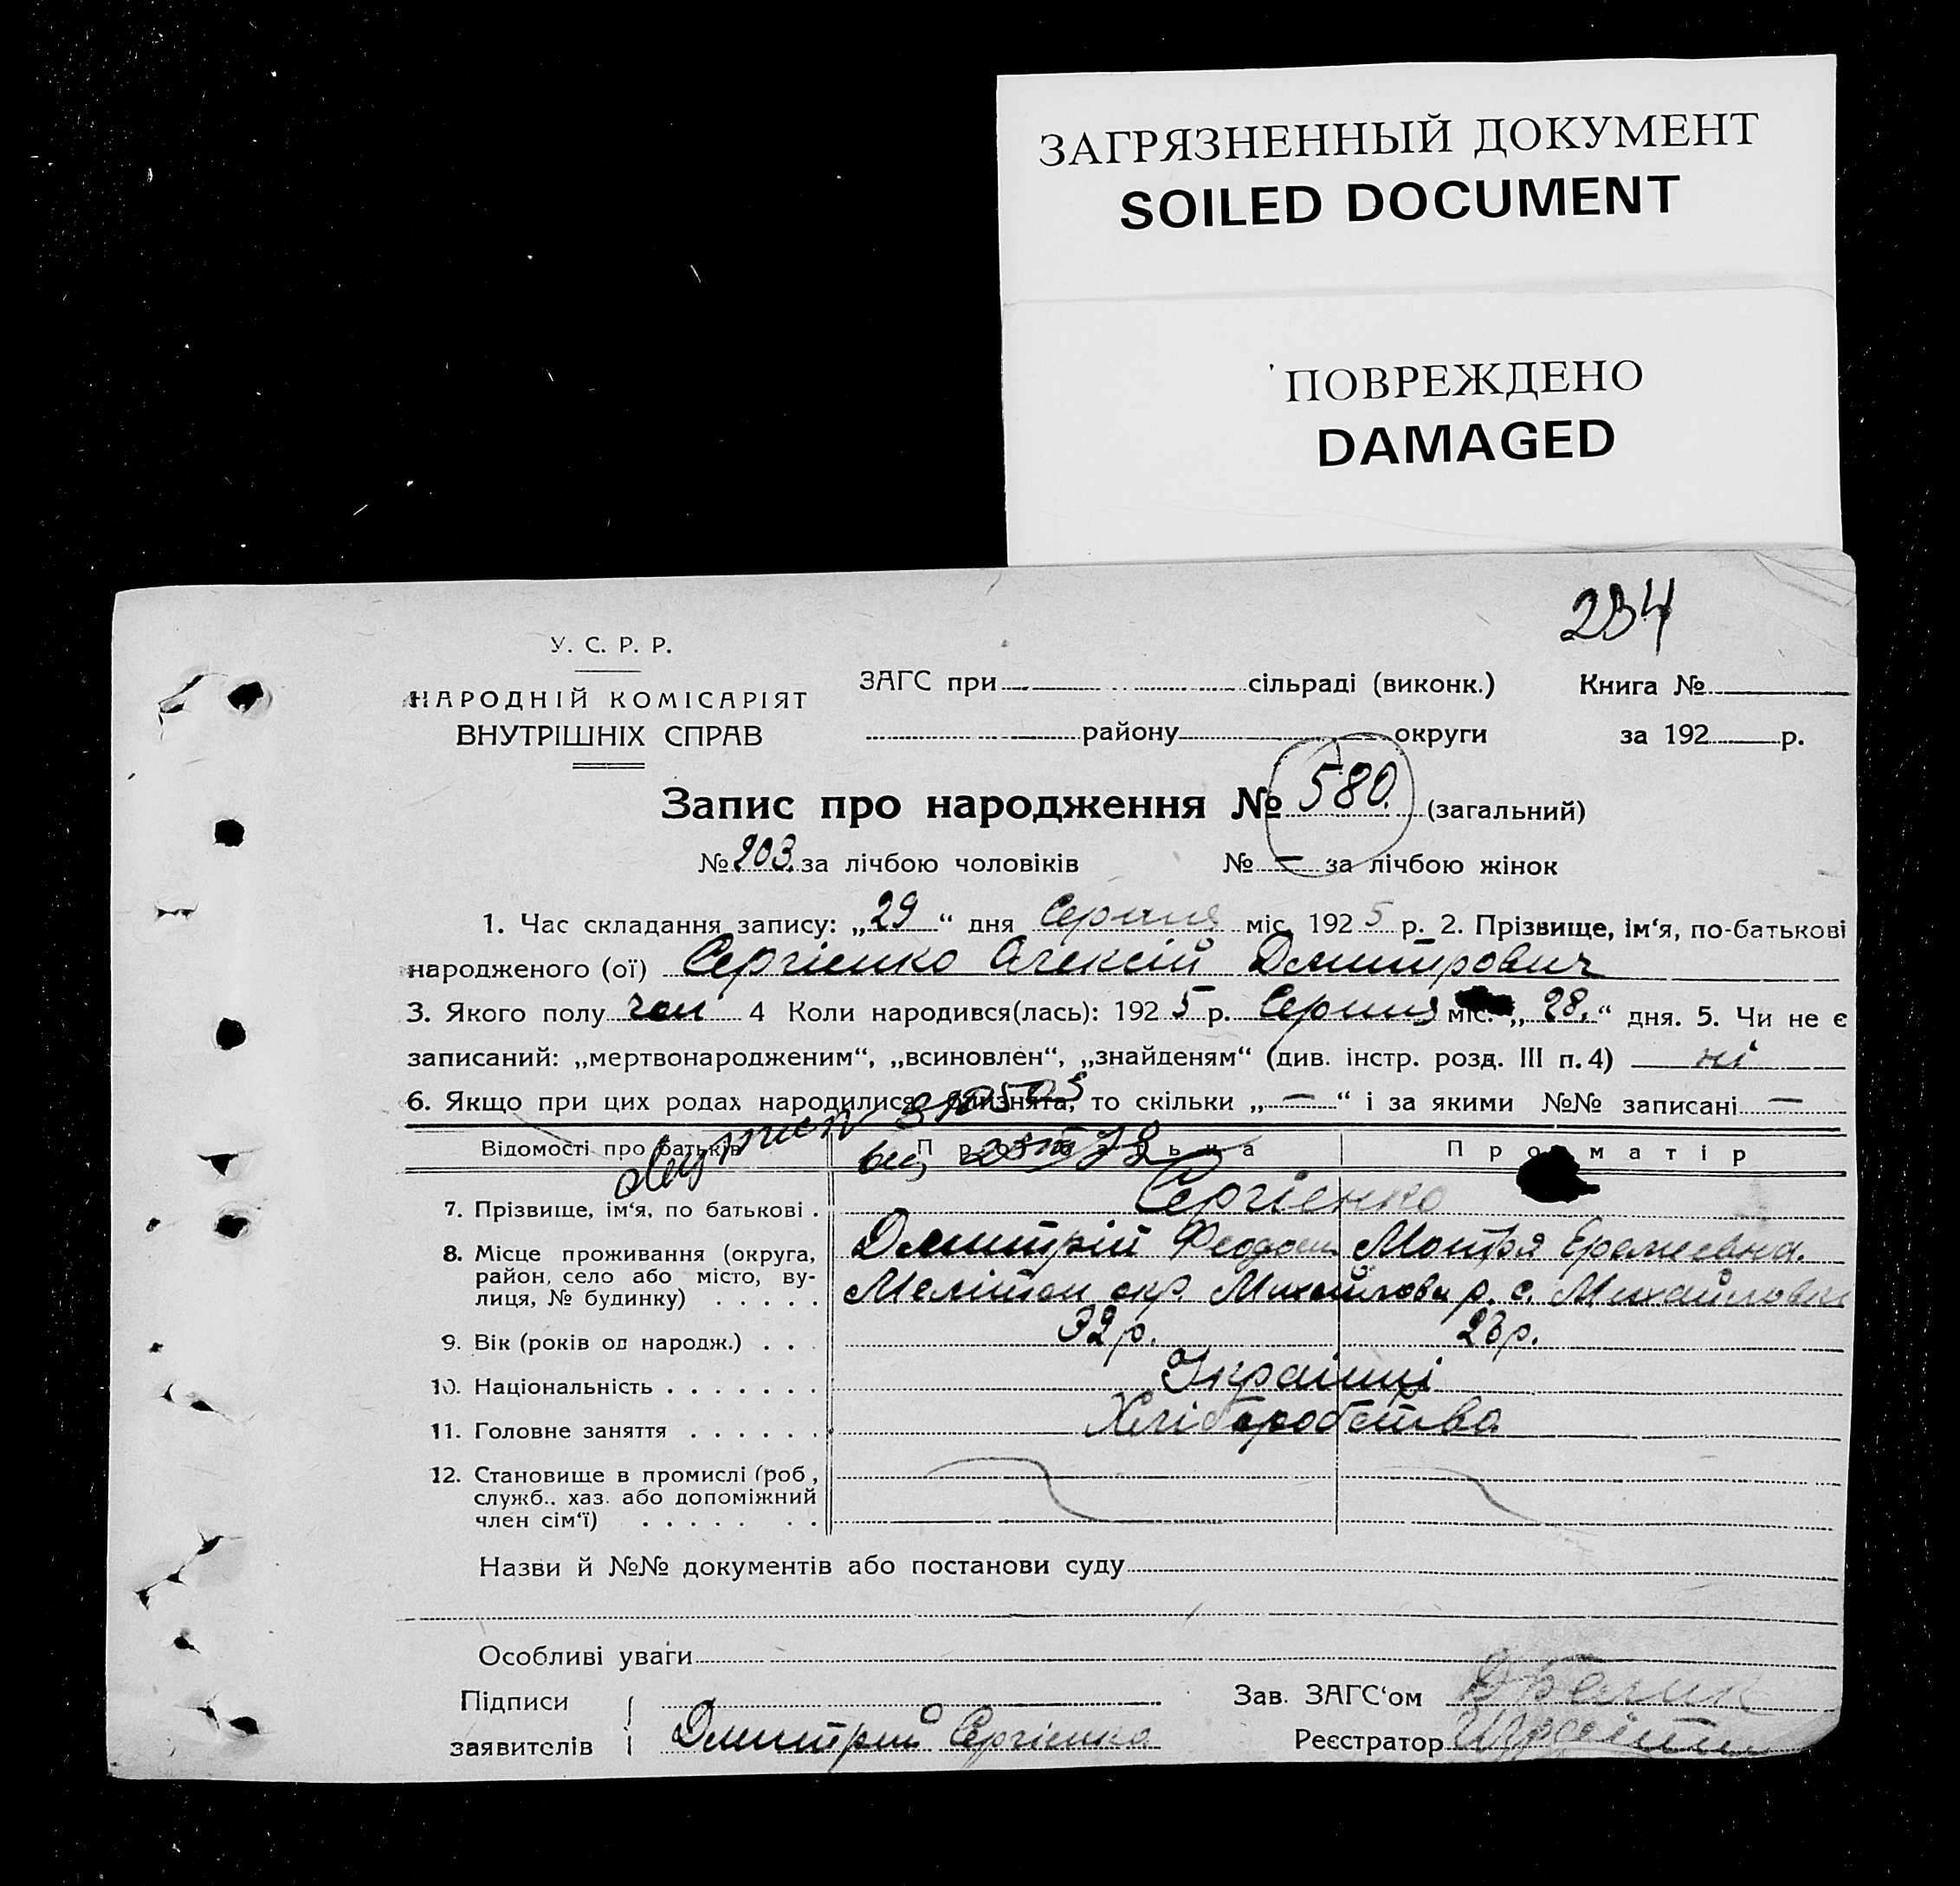 ЗАГРЯЗНЕННЫЙ ДОКУМЕНТ
SOILED DOCUMENT
ПОВРЕЖДЕНО
DAMAGED
234
У. С. Р. Р.
НАРОДНІЙ КОМІСАРІЯТ
ВНУТРІШНІХ СПРАВ
ЗАГС при сільраді (виконк.) Книга №
району округи за 192 р.
Запис про народження № 580. (загальний)
№ 203. за лічбою чоловіків № — за лічбою жінок
1. Час складання запису: „29“ дня Серпня міс. 1925 р. 2. Прізвище, ім‘я, по-батькові
народженого (ої) Сергієнко Алексій Дмитрович
3. Якого полу чол 4 Коли народився(лась): 1925 р. Серпня міс. „28.“ дня. 5. Чи не є
записаний: „мертвонародженим“, „всиновлен“, „знайденям“ (див. інстр. розд. III п. 4) ні
6. Якщо при цих родах народилися близнята, то скільки „—“ і за якими №№ записані —
Відомості про батьків Про батька Про матір
7. Прізвище, ім‘я, по батькові . Сергієнко
Дмитрій Феодос Мотря
8. Місце проживання (округа,
район, село або місто, ву-
лиця, № будинку) . . . . . Мелітоп окр. Михайлови р. с. Михайловка
9. Вік (років од народж.) . . . 32 р. 23 р.
10. Національність . . . . . . . Українці
11. Головне заняття . . . . . . Хліборобство
12. Становище в промислі (роб.,
служб., хаз. або допоміжний
член сім‘ї) . . . . . . .
Назви й №№ документів або постанови суду
Особливі уваги
Підписи
заявителів Дмитрий Сергієнко
Зав. ЗАГС‘ом
Реєстратор